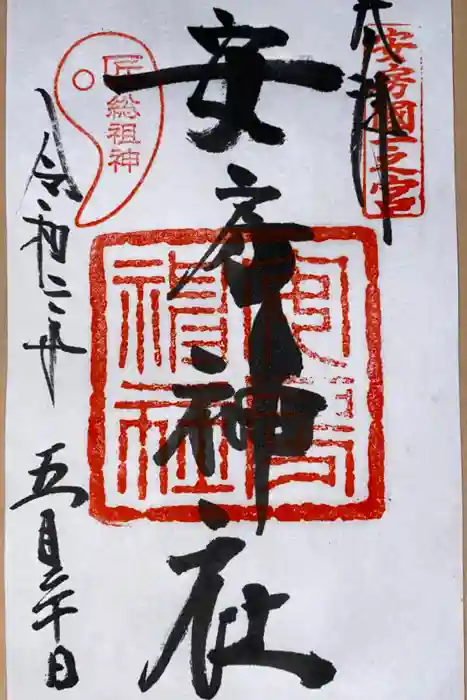 奉拝
安房国一之宮
安房神社
安房神社
匠総祖神
令和二年
五月二十日